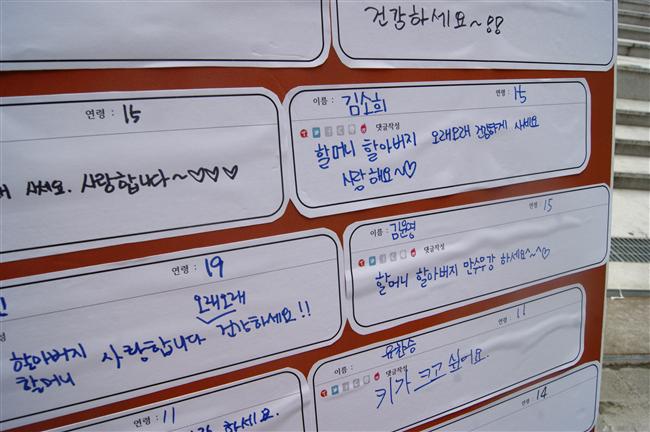 건강하세요~
연령 : 15
사세요. 사랑합니다~♡♡♡
이름 : 김소희 15
댓글작성
할머니 할아버지 오래오래 건강하게 사세요
사랑해요~♡
연령 : 19
오래오래
할아버지 사랑합니다 건강하세요!!
할머니
이름 : 김문영 연령 : 15
댓글작성
할머니 할아버지 만수무강 하세요~^~♡
이름 : 연령 : 11
댓글작성
키가 크고 싶어요.
연령 : 11
하세요.
연령 : 14